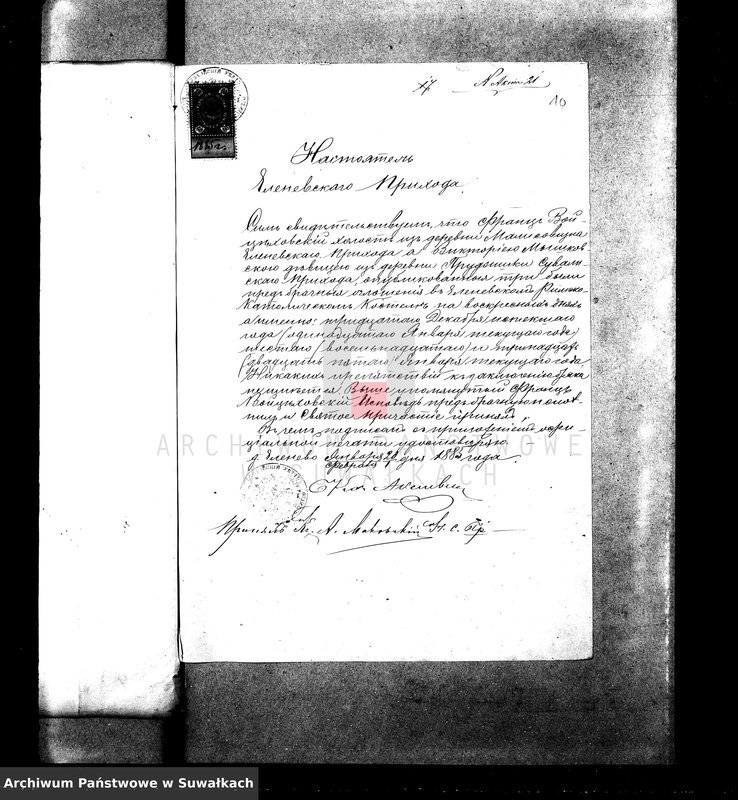 17 N Акта 21
10
1885 г.
Настоятель
Еленевскаго Прихода.
Симъ свидѣтельствуетъ, что Францъ Вой-
цѣховскій холостъ изъ деревни Малесовизна
Еленевскаго Прихода а Викторіею Мышков-
скою дѣвицею изъ деревни Прудзишки Сувалк-
скаго Прихода, опубликованныя три были
предъбрачныя оглошенія въ Еленевскомъ Римско
Католическомъ Костелѣ на воскресныхъ дняхъ
а именно: тридцатаго Декабря минекшаго
года (одинадцатаго Января текущаго года)
шестаго (восемьнадцатаго) и тринадцат
(двадцать пятаго) Января текущаго года
Никакихъ препятствій къ заключенію брака
Выше упомянутый Францъ
Войцѣховскій Исповѣдь предъбрачную
и Святое Причастіе принялъ
Въ чемъ подписомъ съ приложеніемъ оффи-
ціальной печати удостовѣряю.
д. Еленево Января 20 дня 1885 года.
Февраля 1
Кс.
Принялъ Кс. А. Маковскій
ARCHIWUM PAŃSTWOWE
W SUWAŁKACH
Archiwum Państwowe w Suwałkach